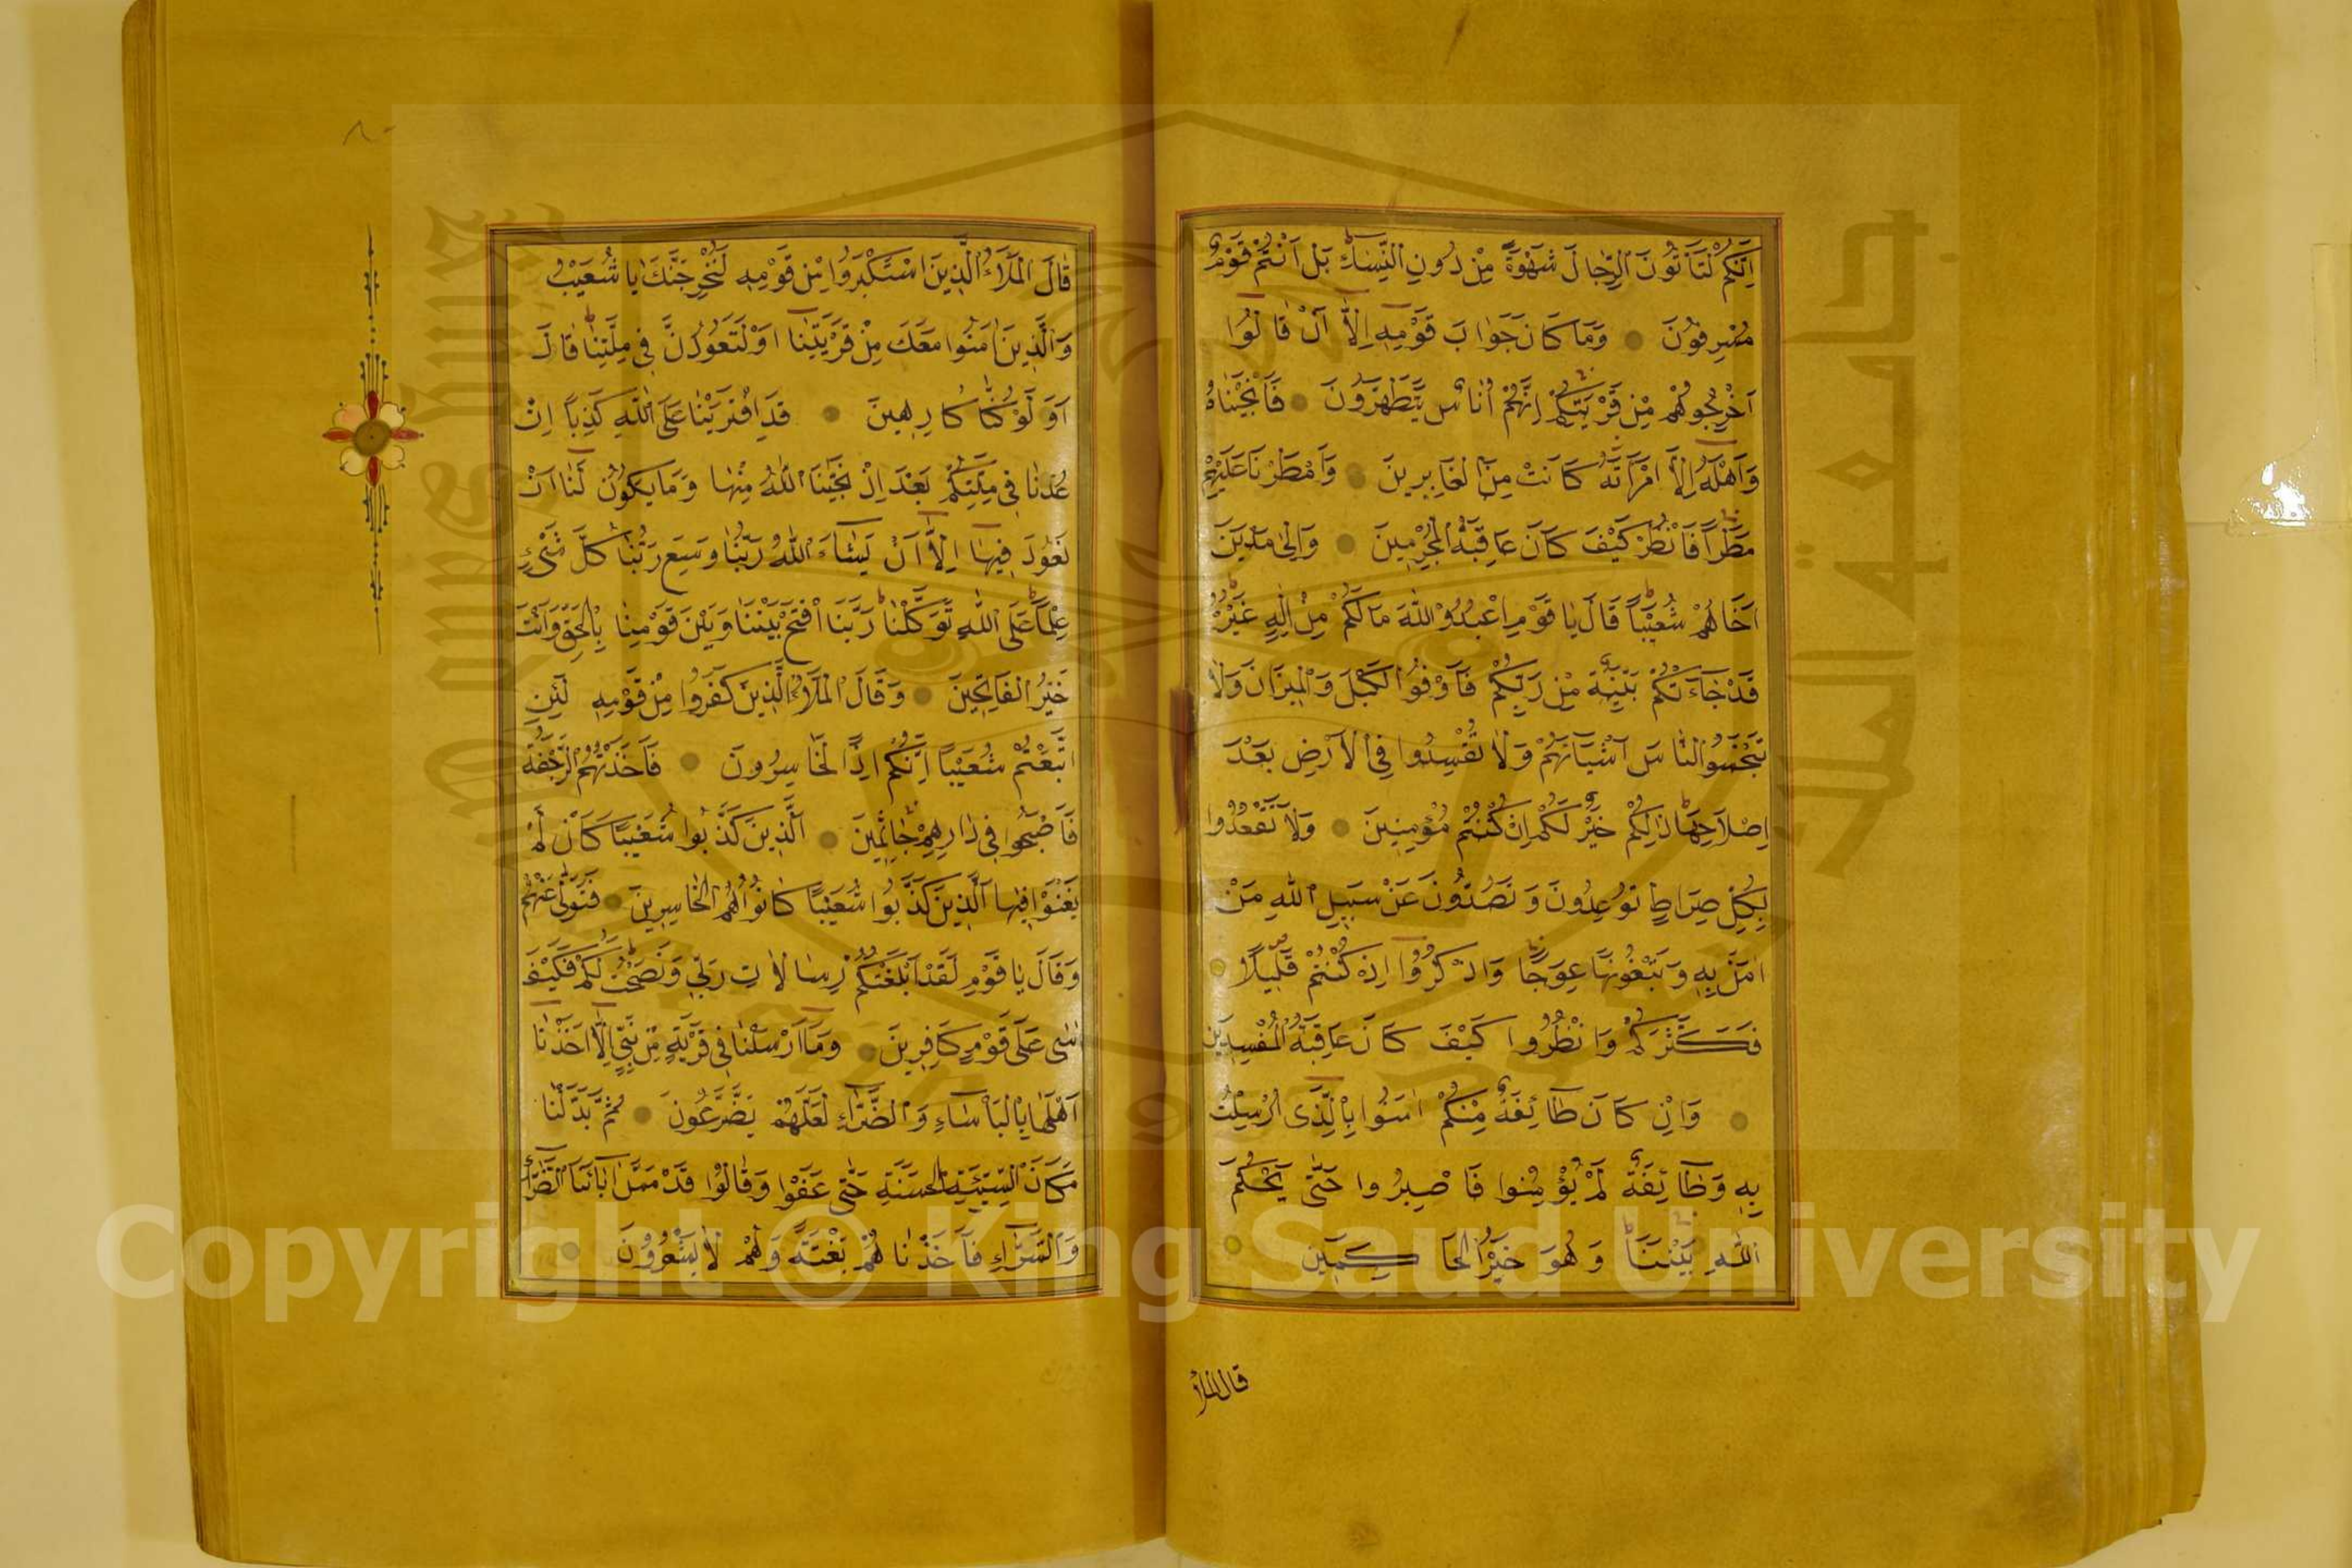 اِنَّكُمْ لَتَأْتُونَ الرِّجَالَ شَهْوَةً مِنْ دُونِ النِّسَاءِ بَلْ اَنْتُمْ قَوْمٌ
مُسْرِفُونَ وَمَا كَانَ جَوَابَ قَوْمِهِ اِلَّا اَنْ قَالُوا
اَخْرِجُوهُمْ مِنْ قَرْيَتِكُمْ اِنَّهُمْ اُنَاسٌ يَتَطَهَّرُونَ فَاَنْجَيْنَاهُ
وَاَهْلَهُ اِلَّا امْرَاَتَهُ كَانَتْ مِنَ الْغَابِرِينَ وَاَمْطَرْنَا عَلَيْهِمْ
مَطَرًا فَانْظُرْ كَيْفَ كَانَ عَاقِبَةُ الْمُجْرِمِينَ وَاِلٰى مَدْيَنَ
اَخَاهُمْ شُعَيْبًا قَالَ يَا قَوْمِ اعْبُدُوا اللّٰهَ مَا لَكُمْ مِنْ اِلٰهٍ غَيْرُهُ
قَدْ جَاءَتْكُمْ بَيِّنَةٌ مِنْ رَبِّكُمْ فَاَوْفُوا الْكَيْلَ وَالْمِيزَانَ وَلَا
تَبْخَسُوا النَّاسَ اَشْيَاءَهُمْ وَلَا تُفْسِدُوا فِي الْاَرْضِ بَعْدَ
اِصْلَاحِهَا ذٰلِكُمْ خَيْرٌ لَكُمْ اِنْ كُنْتُمْ مُؤْمِنِينَ وَلَا تَقْعُدُوا
بِكُلِّ صِرَاطٍ تُوعِدُونَ وَتَصُدُّونَ عَنْ سَبِيلِ اللّٰهِ مَنْ
اٰمَنَ بِهِ وَتَبْغُونَهَا عِوَجًا وَاذْكُرُوا اِذْ كُنْتُمْ قَلِيلًا
فَكَثَّرَكُمْ وَانْظُرُوا كَيْفَ كَانَ عَاقِبَةُ الْمُفْسِدِينَ
وَاِنْ كَانَ طَائِفَةٌ مِنْكُمْ اٰمَنُوا بِالَّذِي اُرْسِلْتُ
بِهِ وَطَائِفَةٌ لَمْ يُؤْمِنُوا فَاصْبِرُوا حَتّٰى يَحْكُمَ
اللّٰهُ بَيْنَنَا وَهُوَ خَيْرُ الْحَاكِمِينَ
قال الملأ
قَالَ الْمَلَاُ الَّذِينَ اسْتَكْبَرُوا مِنْ قَوْمِهِ لَنُخْرِجَنَّكَ يَا شُعَيْبُ
وَالَّذِينَ اٰمَنُوا مَعَكَ مِنْ قَرْيَتِنَا اَوْ لَتَعُودُنَّ فِي مِلَّتِنَا قَالَ
اَوَ لَوْ كُنَّا كَارِهِينَ قَدِ افْتَرَيْنَا عَلَى اللّٰهِ كَذِبًا اِنْ
عُدْنَا فِي مِلَّتِكُمْ بَعْدَ اِذْ نَجّٰينَا اللّٰهُ مِنْهَا وَمَا يَكُونُ لَنَا اَنْ
نَعُودَ فِيهَا اِلَّا اَنْ يَشَاءَ اللّٰهُ رَبُّنَا وَسِعَ رَبُّنَا كُلَّ شَيْءٍ
عِلْمًا عَلَى اللّٰهِ تَوَكَّلْنَا رَبَّنَا افْتَحْ بَيْنَنَا وَبَيْنَ قَوْمِنَا بِالْحَقِّ وَاَنْتَ
خَيْرُ الْفَاتِحِينَ وَقَالَ الْمَلَاُ الَّذِينَ كَفَرُوا مِنْ قَوْمِهِ لَئِنِ
اتَّبَعْتُمْ شُعَيْبًا اِنَّكُمْ اِذًا لَخَاسِرُونَ فَاَخَذَتْهُمُ الرَّجْفَةُ
فَاَصْبَحُوا فِي دَارِهِمْ جَاثِمِينَ اَلَّذِينَ كَذَّبُوا شُعَيْبًا كَاَنْ لَمْ
يَغْنَوْا فِيهَا اَلَّذِينَ كَذَّبُوا شُعَيْبًا كَانُوا هُمُ الْخَاسِرِينَ فَتَوَلّٰى عَنْهُمْ
وَقَالَ يَا قَوْمِ لَقَدْ اَبْلَغْتُكُمْ رِسَالَاتِ رَبِّي وَنَصَحْتُ لَكُمْ فَكَيْفَ
اٰسٰى عَلٰى قَوْمٍ كَافِرِينَ وَمَا اَرْسَلْنَا فِي قَرْيَةٍ مِنْ نَبِيٍّ اِلَّا اَخَذْنَا
اَهْلَهَا بِالْبَأْسَاءِ وَالضَّرَّاءِ لَعَلَّهُمْ يَضَّرَّعُونَ ثُمَّ بَدَّلْنَا
مَكَانَ السَّيِّئَةِ الْحَسَنَةَ حَتّٰى عَفَوْا وَقَالُوا قَدْ مَسَّ اٰبَاءَنَا الضَّرَّاءُ
وَالسَّرَّاءُ فَاَخَذْنَاهُمْ بَغْتَةً وَهُمْ لَا يَشْعُرُونَ
Copyright © King Saud University